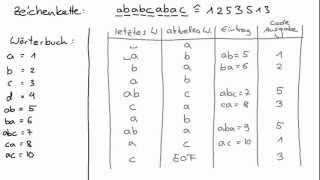 Zeichenkette: ababcabac ≙ 1253513
Wörterbuch:
a = 1
b = 2
c = 3
d = 4
ab = 5
ba = 6
abc = 7
ca = 8
ac = 10
letztes Eintrag Code Ausgabe
␣ a
␣a b ab = 5 1
b a ba = 6 2
a b
ab c abc = 7 5
c a ca = 8 3
a b
ab a aba = 9 5
a c ac = 10 1
c EOF 3